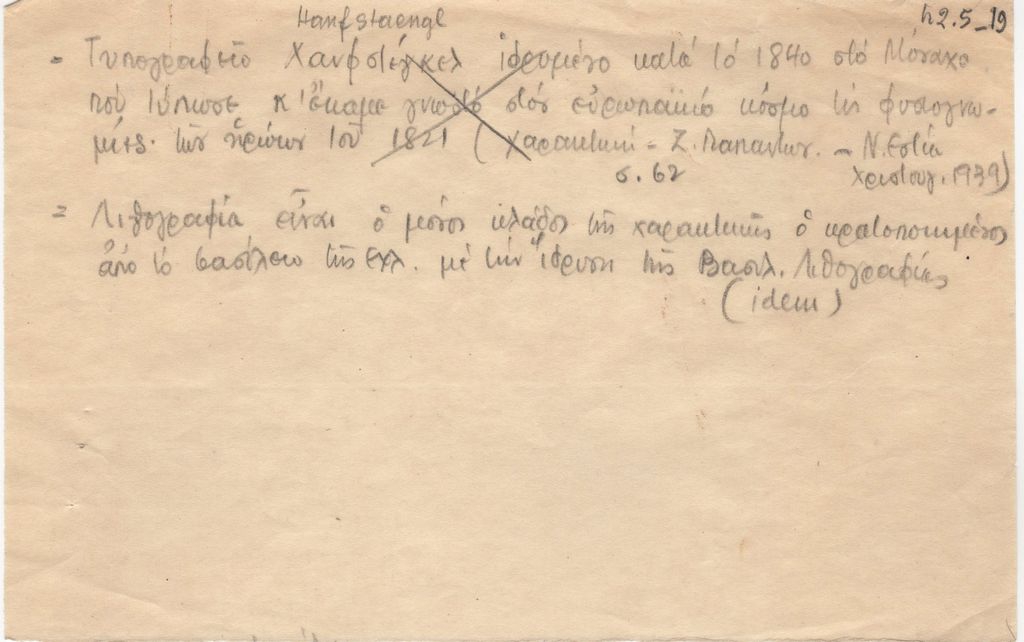 Hanfstaengl
h2.5_19
- Τυπογραφεῖο Χανφστέγκελ ἱδρυμένο κατά τό 1840 στό Μόναχο
πού τύπωσε κ' ἔκαμε γνωστό στόν εὐρωπαϊκό κόσμο τίς φυσιογνω-
μίες τῶν ἡρώων τοῦ 1821 (Χαρακτική - Ζ. Παπαντων. - Ν. Εστία
σ. 62 Χριστουγ. 1939)
= Λιθογραφία εἶναι ὁ μόνος κλάδος τῆς χαρακτικῆς ὁ κρατοποιημένος
ἀπό τό βασίλειο τῆς Ελλ. μέ τήν ἵδρυση τῆς Βασιλ. Λιθογραφίας
(idem)